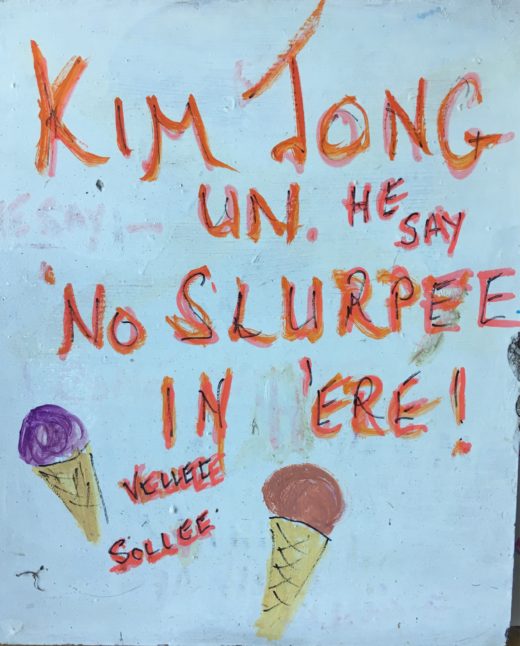 KIM JONG
UN. HE SAY
'NO SLURPEE
IN 'ERE!
VELLEE
SOLLEE